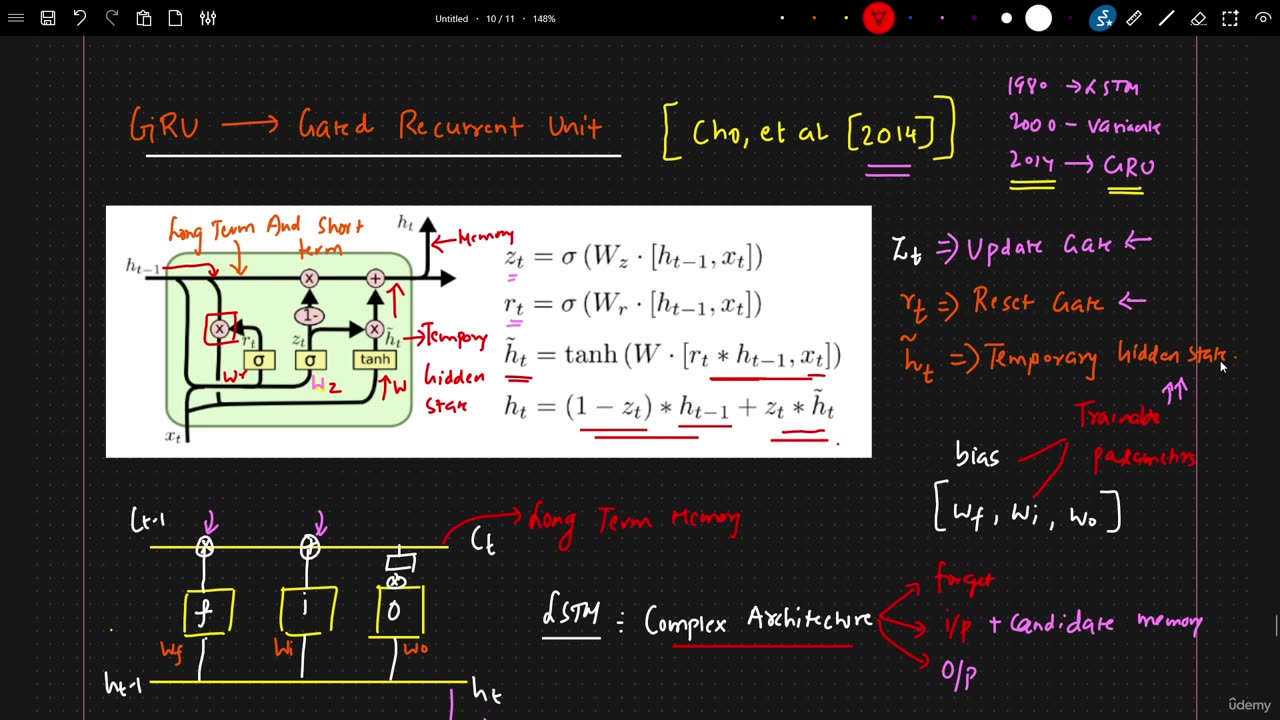 Untitled · 10 / 11 · 148%
1980 → LSTM
2000 - Variants
2014 → GRU
GRU → Gated Recurrent Unit [Cho, et al [2014]]
Long Term And Short
term
h_t
← Memory
h_{t-1}
x
+
1-
x
x
r_t
z_t
h̃_t
σ
σ
tanh
Wr
Wz
↑W
x_t
→ Tempory
hidden
state
z_t = σ (W_z · [h_{t-1}, x_t])
r_t = σ (W_r · [h_{t-1}, x_t])
h̃_t = tanh (W · [r_t * h_{t-1}, x_t])
h_t = (1 − z_t) * h_{t-1} + z_t * h̃_t
Z_t ⇒ Update Gate ←
r_t ⇒ Reset Gate ←
h̃_t ⇒ Temporary hidden state.
Trainable
parameters
bias
[Wf, Wi, Wo]
C_{t-1}
C_t
→ Long Term Memory
x
+
x
f
i
O
Wf
Wi
Wo
h_{t-1}
h_t
LSTM : Complex Architecture
forget
i/p + candidate memory
O/p
ûdemy